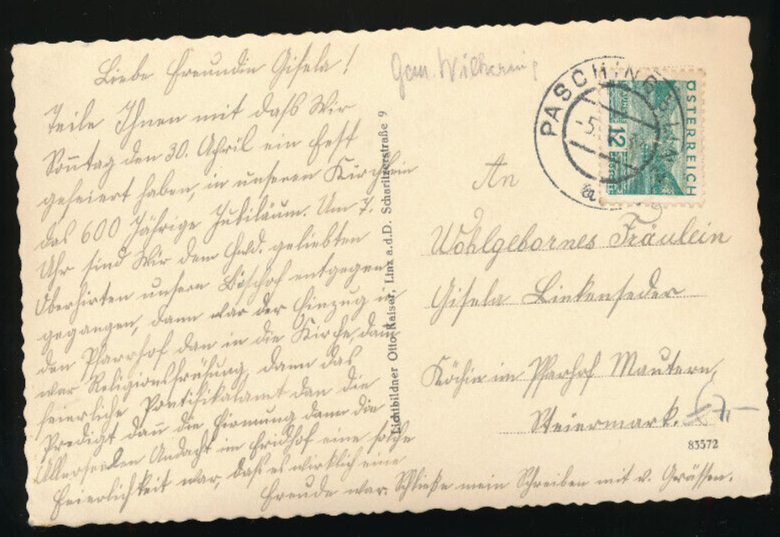 Liebe Freundin Gisela!
Teile Ihnen mit daß Wir
Sonntag den 30. April ein Fest
gefeiert haben, in unseren Kirchlein
das 600 Jährige Jubiläum. Um 7.
Uhr sind Wir dem geliebten
Oberhirten unsern Bischof entgegen
gegangen, dann war der Einzug in
den Pfarrhof dan in die Kirche, dann
war Religionsprüfung, dann das
feierliche Pontifikalamt dan die
Predigt dann die Firmung dann die
Allerseelen Andacht im Fridhof eine solche
Feierlichkeit war, daß es wirklich eine
Freude war. Schließe mein Schreiben mit v. Grüssen.
Lichtbildner Otto Kaiser, Linz a.d.D. Scharitzerstraße 9
Gem. Wilhering
PASCHING
ÖSTERREICH
12
An
Wohlgebornes Fräulein
Gisela Linkenseder
Köchin im Pfarhof Mautern,
Steiermark.
83572